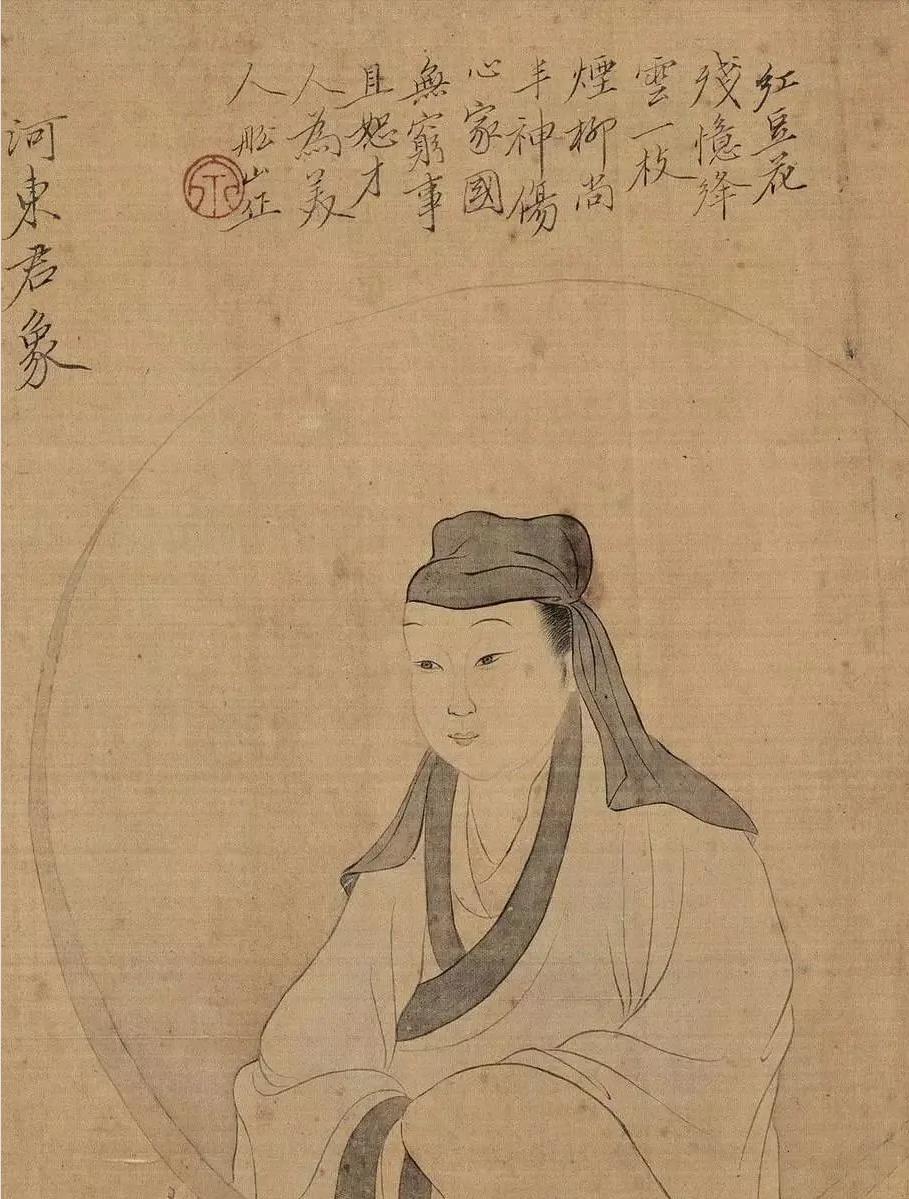 紅豆花
殘憶絳
雲一枝
煙柳尚
丰神傷
心家國
無窮事
且恕才
人為美
人船山作
河東君象